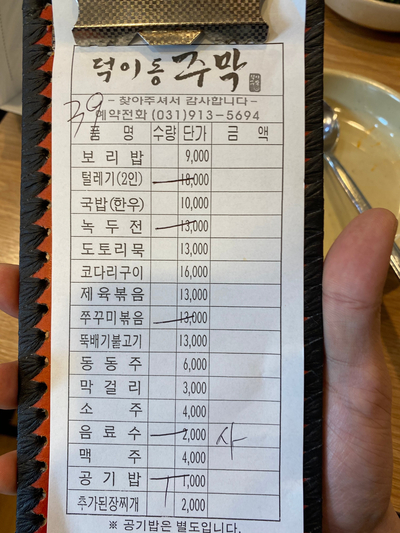 덕이동 주막
- 찾아주셔서 감사합니다 -
예약전화 (031)913-5694
39
품 명 수량 단가 금 액
보리밥 9,000
털레기(2인) 18,000
국밥(한우) 10,000
녹두전 13,000
도토리묵 13,000
코다리구이 16,000
제육볶음 13,000
쭈꾸미볶음 13,000
뚝배기불고기 13,000
동동주 6,000
막걸리 3,000
소주 4,000
음료수 2,000 사
맥주 4,000
공기밥 1,000
추가된장찌개 2,000
※ 공기밥은 별도입니다.